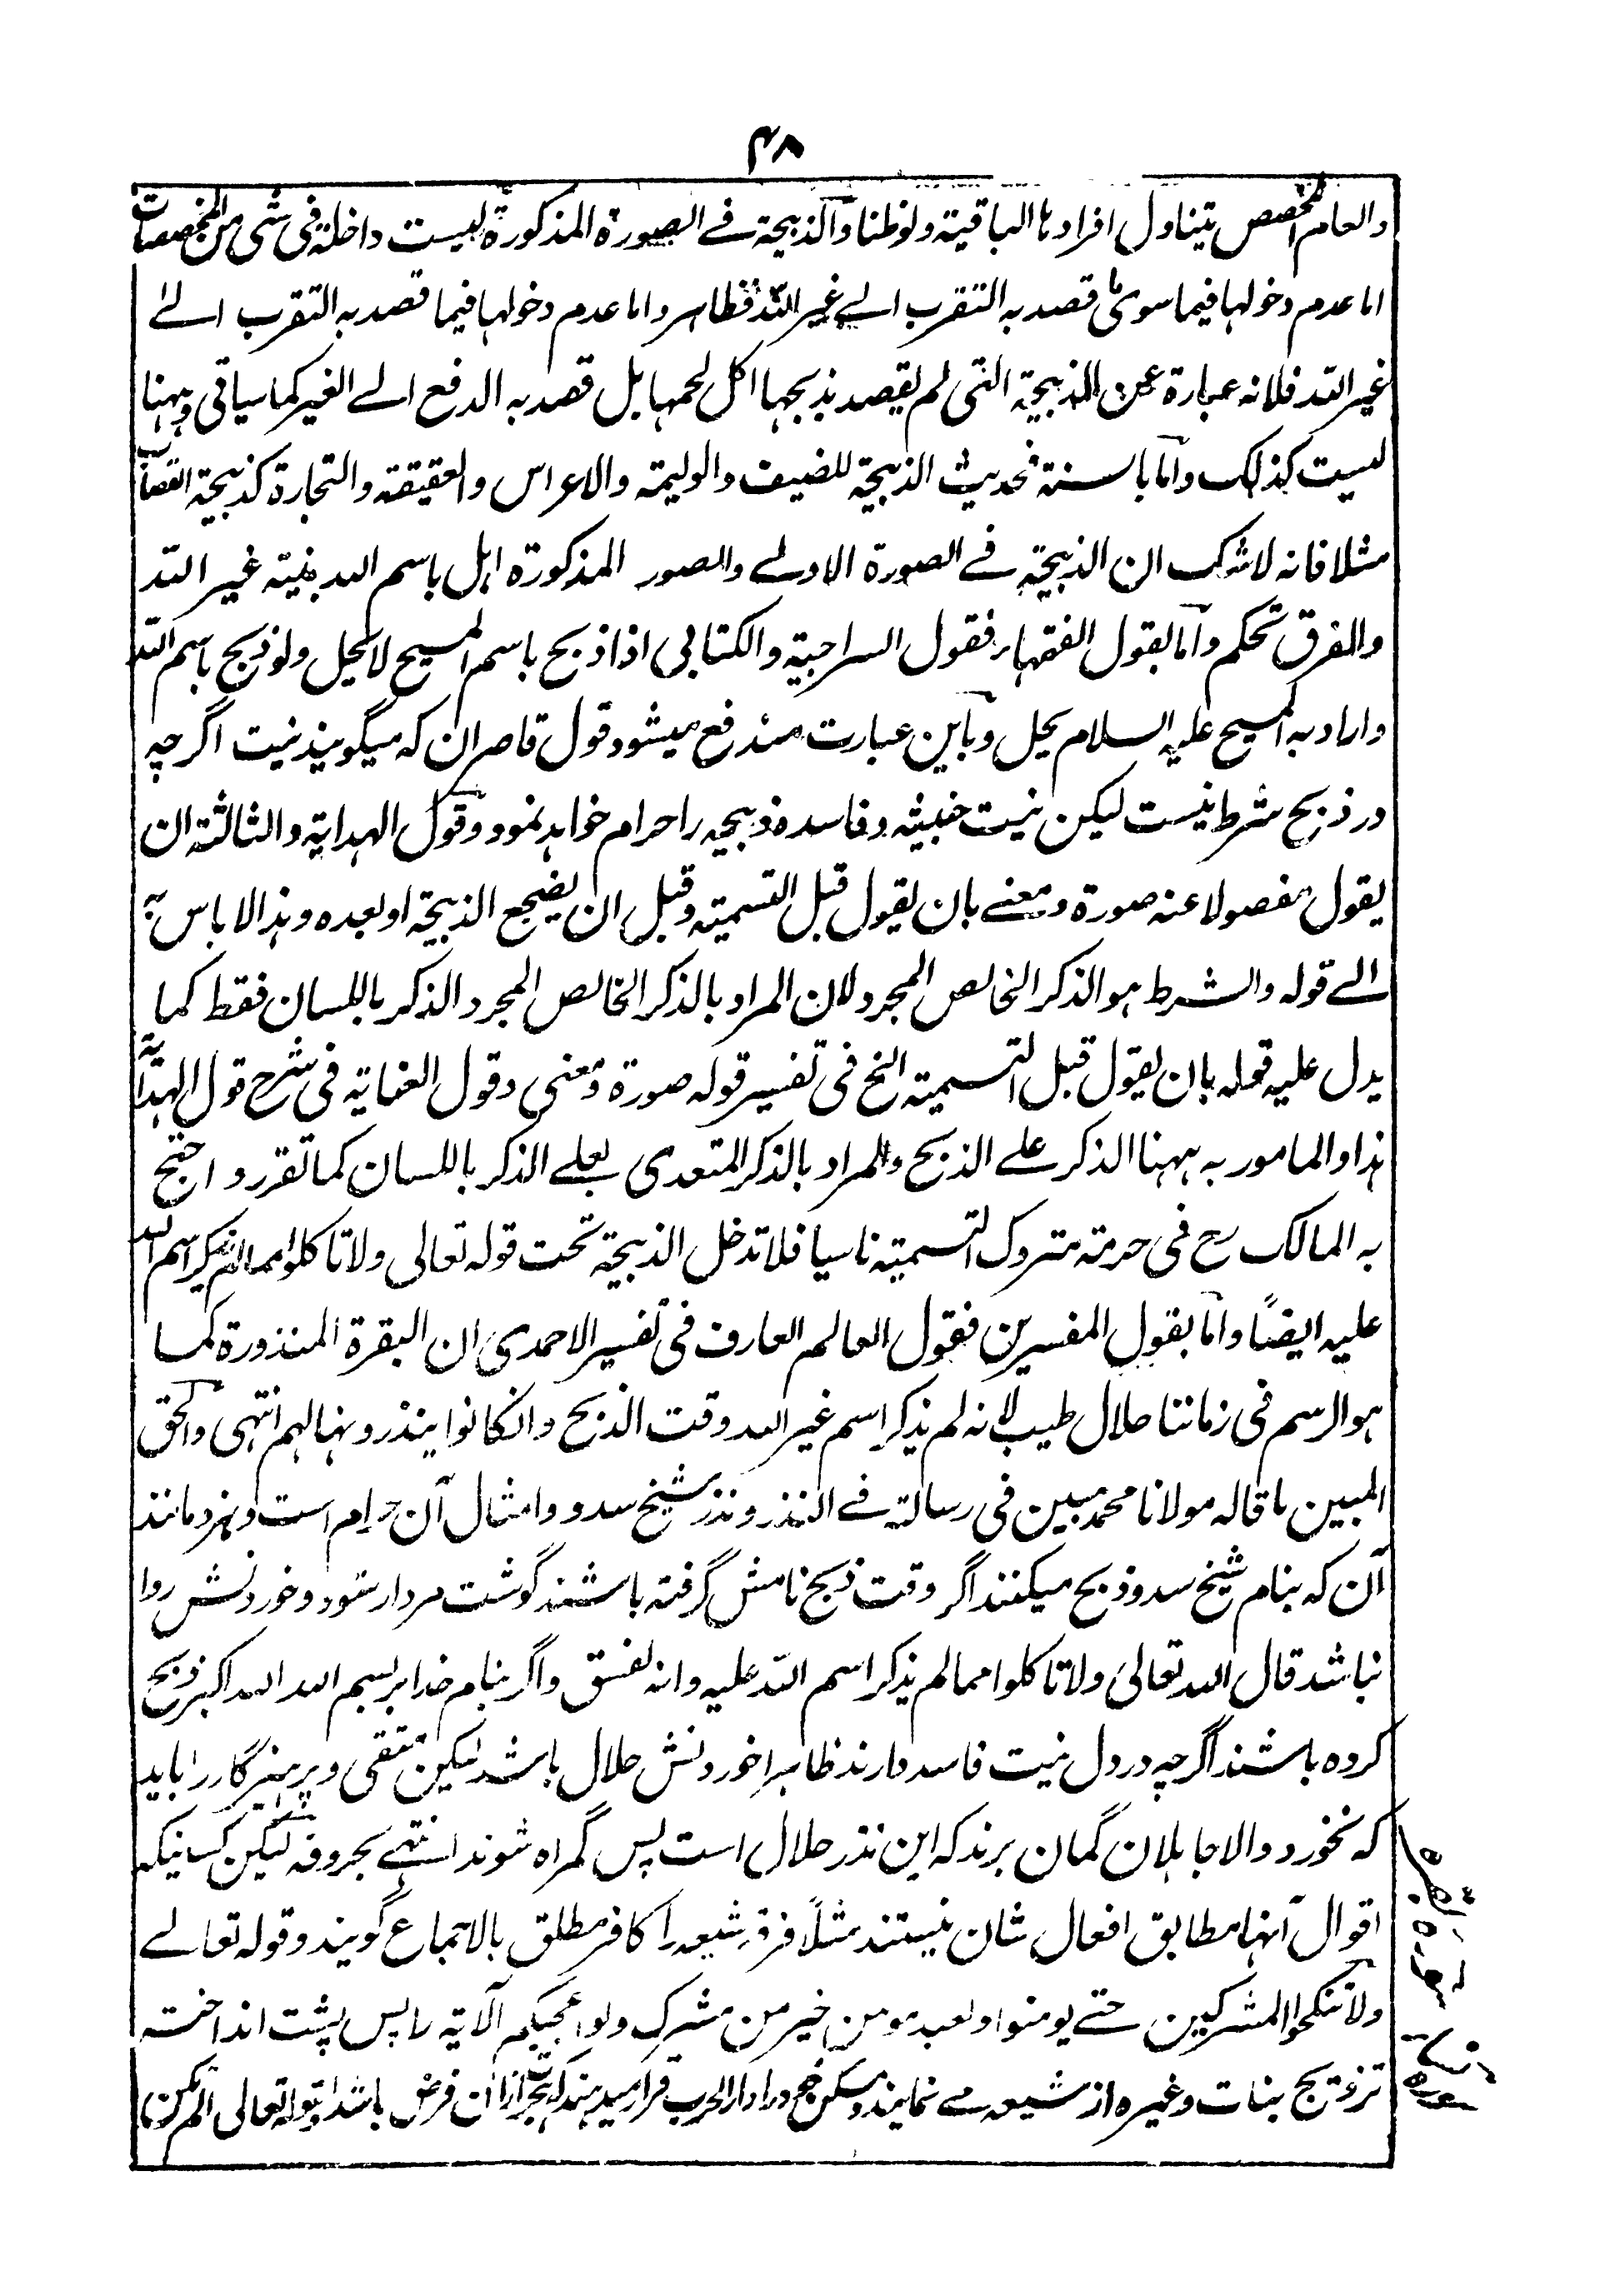 ۴۸
والعام المخصص یتناول افرادہ الباقیۃ ولو ظنا والذبیحۃ فے الصورۃ المذکورۃ لیست داخلۃ فی شی من المخصصات
اما عدم دخولہا فیما سوی ما قصد بہ التقرب الے غیر اللہ فظاہر و اما عدم دخولہا فیما قصد بہ التقرب الے
غیر اللہ فلانہ عبارۃ عن الذبیحۃ التی لم یقصد بذبحہا اکل لحمہا بل قصد بہ الدفع الے الغیر کما سیاتی وہہنا
لیست کذلک واما بالسنۃ فحدیث الذبیحۃ للضیف والولیمۃ والاعراس والعقیقۃ والتجارۃ کذبیحۃ القصاب
مثلا فانہ لاشک ان الذبیحۃ فے الصورۃ الاولے والصور المذکورۃ اہل باسم اللہ بنیۃ غیر اللہ
والفرق تحکم واما بقول الفقہاء فقول السراجیۃ والکتابی اذا ذبح باسم المسیح لا یحل ولو ذبح باسم اللہ
واراد بہ المسیح علیہ السلام یحل وباین عبارت مندفع میشود قول قاصران کہ میگویند نیت اگرچہ
در ذبح شرط نیست لیکن نیت خبیثہ و فاسدہ ذبیحہ را حرام خواہد نمود وقول الہدایۃ والثالثۃ ان
یقول مفصولا عنہ صورۃ ومعنے بان یقول قبل التسمیۃ وقبل ان یضجع الذبیحۃ او بعدہ وہذا لاباس بہ
الے قولہ والشرط ہو الذکر الخالص المجرد لان المراد بالذکر الخالص المجرد الذکر باللسان فقط کما
یدل علیہ قولہ بان یقول قبل التسمیۃ الخ فی تفسیر قولہ صورۃ ومعنی وقول العنایۃ فی شرح قول الہدایۃ
ہذا والمامور بہ ہہنا الذکر علے الذبح والمراد بالذکر المتعدی بعلے الذکر باللسان کما تقرر واحتج
بہ المالک رح فی حرمۃ متروک التسمیۃ ناسیا فلا تدخل الذبیحۃ تحت قولہ تعالی ولا تاکلوا مما لم یذکر اسم اللہ
علیہ ایضًا واما بقول المفسرین فقول العالم العارف فی تفسیر الاحمدی ان البقرۃ المنذورۃ کما
ہو الرسم فی زماننا حلال طیب لانہ لم یذکر اسم غیر اللہ وقت الذبح وان کانوا ینذرونہا لہم انتہی والحق
المبین ما قالہ مولانا محمد مبین فی رسالتہ فے النذر ونذر شیخ سدو و امثال آن حرام است وبزو مانند
آن کہ بنام شیخ سدو ذبح میکنند اگر وقت ذبح نامش گرفتہ باشند گوشت مردار شود و خوردنش روا
نباشد قال اللہ تعالیٰ ولا تاکلوا مما لم یذکر اسم اللہ علیہ وانہ لفسق واگر بنام خدا بر بسم اللہ اللہ اکبر ذبح
کردہ باشند اگرچہ در دل نیت فاسد دارند ظاہرا خوردنش حلال باشد لیکن متقی و پرہیزگار را باید
کہ نخورد والا جاہلان گمان برند کہ این نذر حلال است پس گمراہ شوند انتہے بحروفہ لیکن کسانیکہ
اقوال آنہا مطابق افعال شان نیستند مثلاً فرقہ شیعہ را کافر مطلق بالاجماع گویند وقولہ تعالے
ولا تنکحوا المشرکین حتے یومنوا ولعبد مومن خیر من مشرک ولو اعجبکم الآیۃ را پس پشت انداختہ
تزویج بنات وغیرہ از شیعہ مے نمایند ومسکن خود را دار الحرب قرار میدہند کہ ہجرت ازان فرض باشد وبقولہ تعالی الم تکن
سورہ بقرہ
سورہ نساء